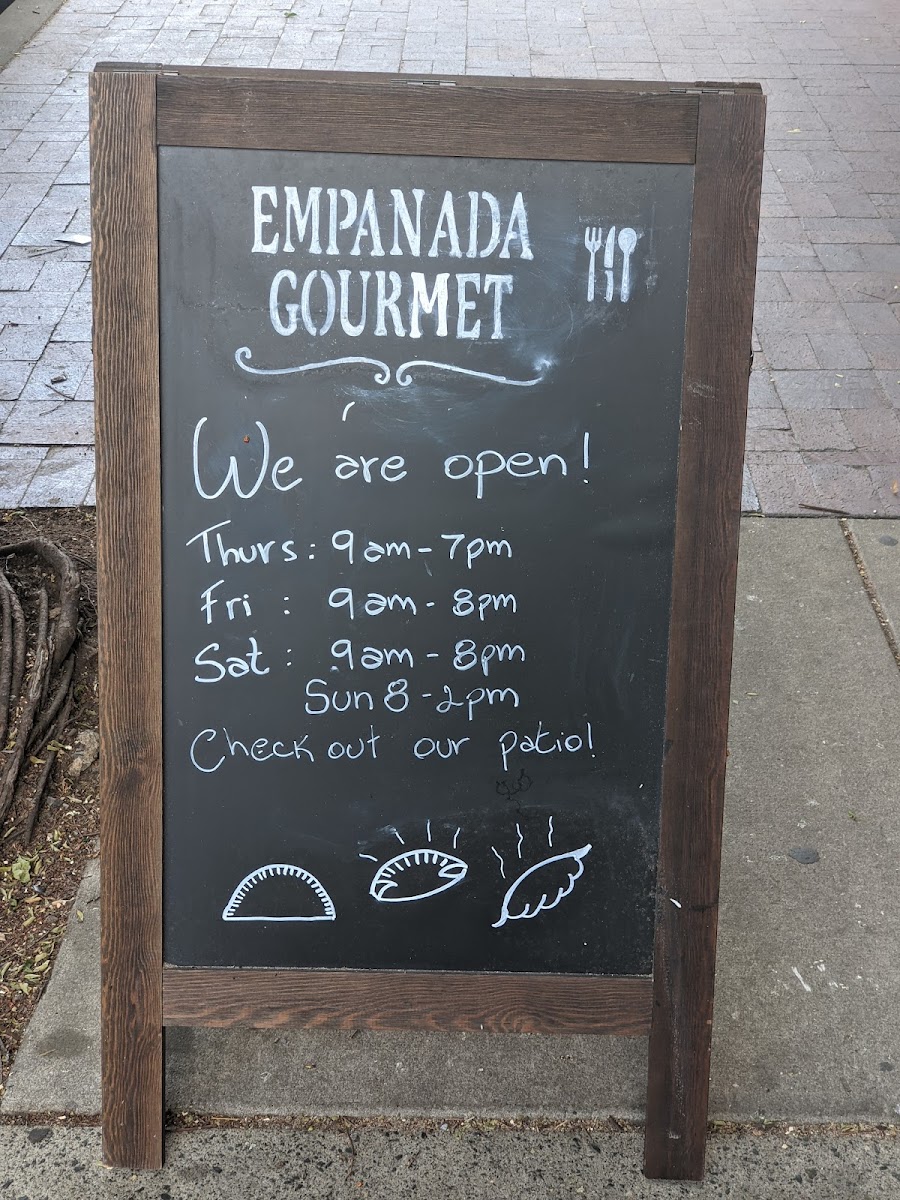 EMPANADA
GOURMET
We are open!
Thurs: 9am-7pm
Fri : 9am- 8pm
Sat: 9am - 8pm
Sun 8 -2pm
Check out our patio!